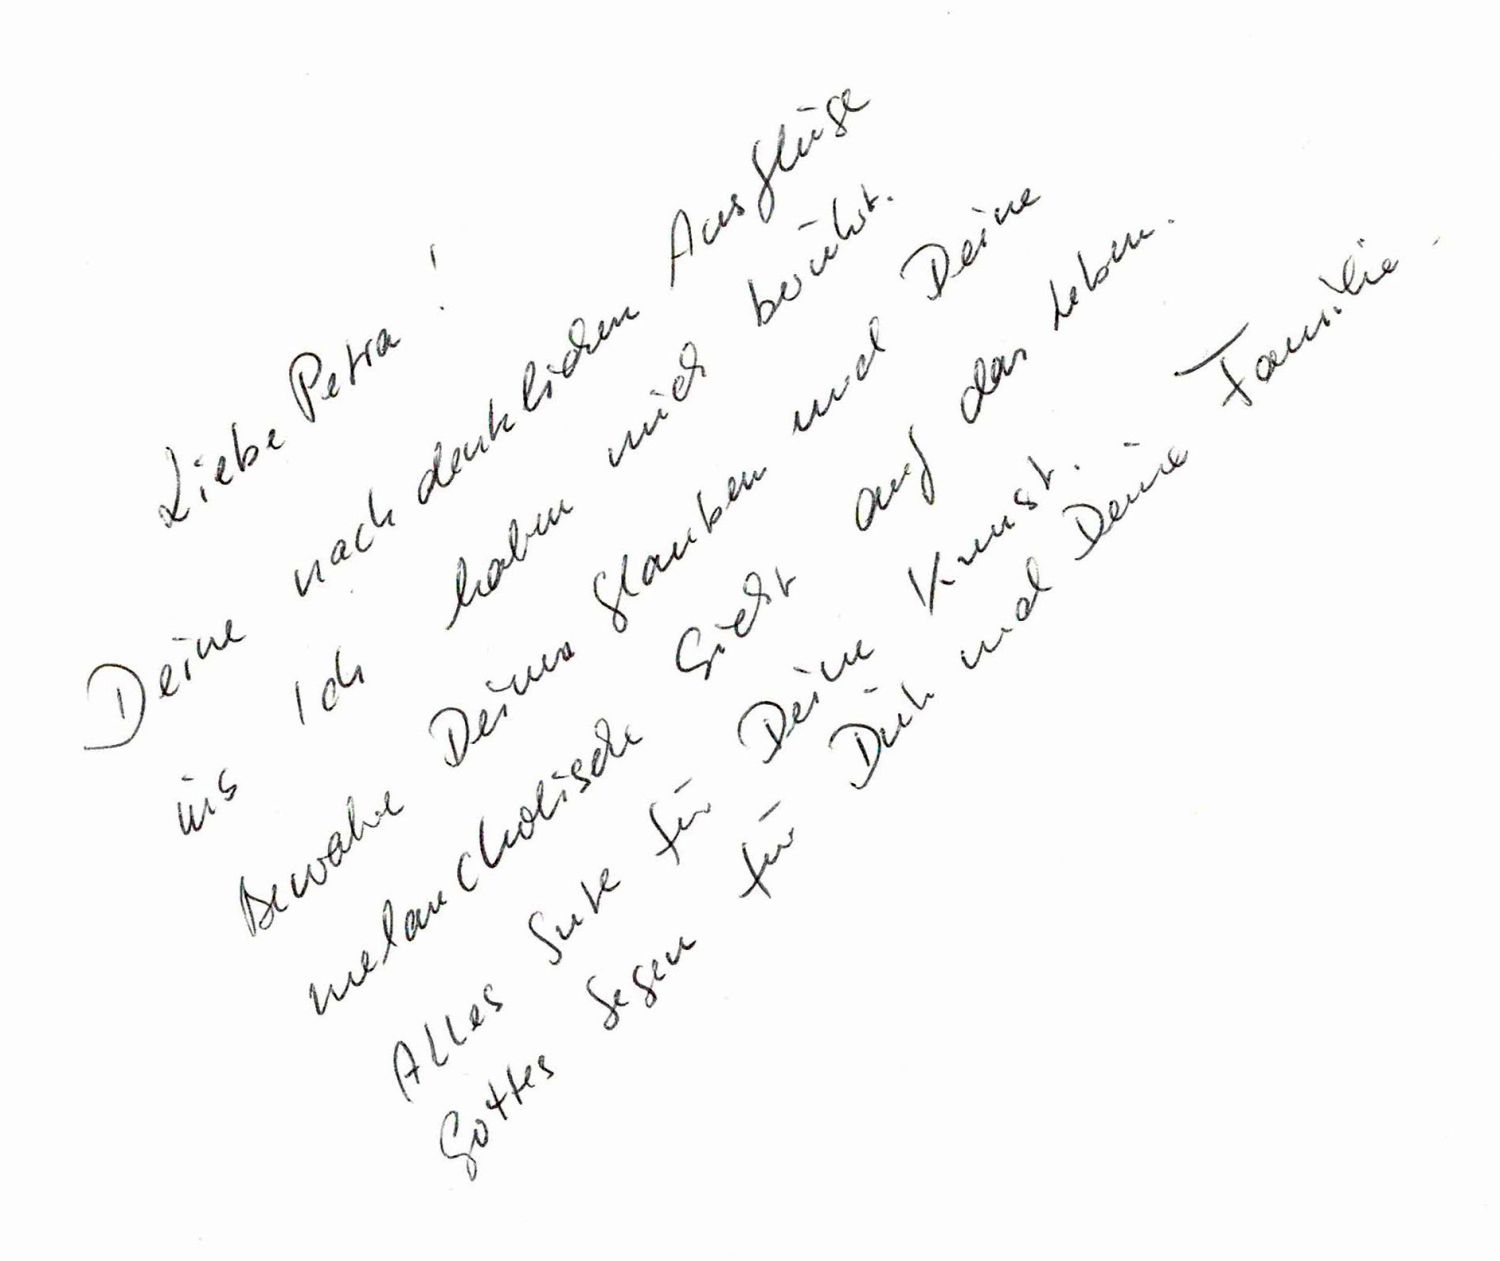 Liebe Petra!
Deine nachdenklichen Ausflüge
ins Ich haben mich berührt.
Bewahre Deinen Glauben und Deine
melancholische Sicht auf das Leben.
Alles Gute für Deine Kunst.
Gottes Segen für Dich und Deine Familie.